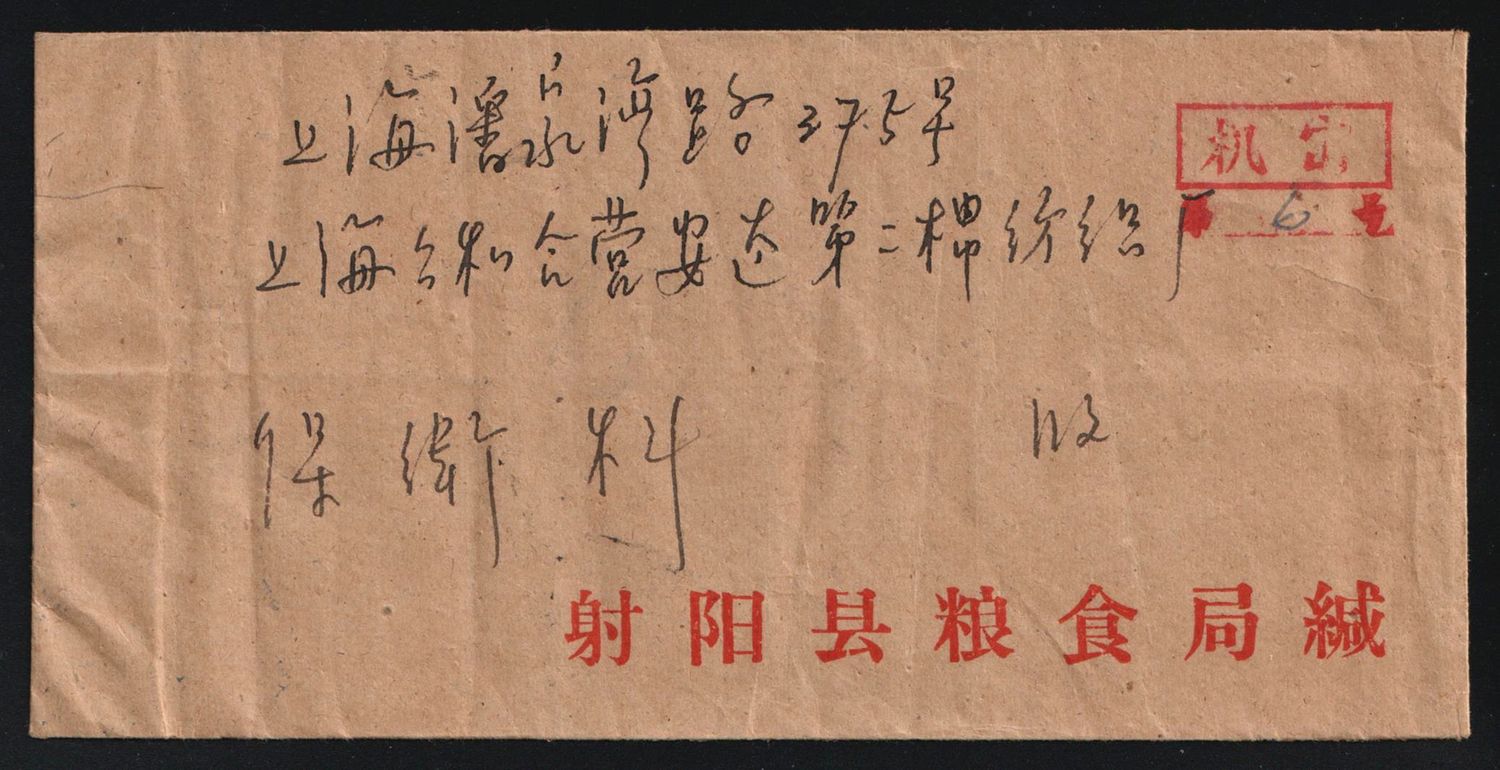 上海潘家湾路275号
机密
第6号
上海公私合营安达第二棉纺织厂
保衛科 收
射阳县粮食局缄